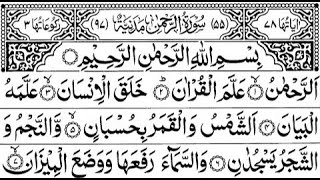 اٰیَاتُهَا ۷۸ (۵۵) سُوْرَةُ الرَّحْمٰنِ مَدَنِيَّةٌ (۹۷) رُكُوْعَاتُهَا ۳
بِسْمِ اللّٰهِ الرَّحْمٰنِ الرَّحِيْمِ
اَلرَّحْمٰنُ ۙ۱ عَلَّمَ الْقُرْاٰنَ ؕ۲ خَلَقَ الْاِنْسَانَ ۙ۳ عَلَّمَهُ
الْبَيَانَ ۴ اَلشَّمْسُ وَ الْقَمَرُ بِحُسْبَانٍ ۪۵ وَّ النَّجْمُ وَ
الشَّجَرُ يَسْجُدٰنِ ۶ وَ السَّمَآءَ رَفَعَهَا وَ وَضَعَ الْمِيْزَانَ ۙ۷